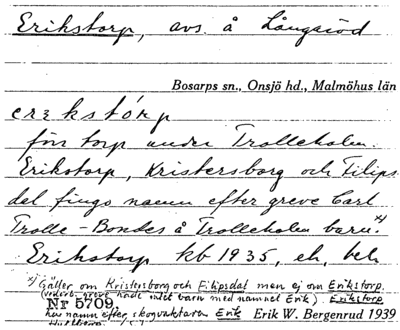 Erikstorp, avs. å Långaröd
Bosarps sn., Onsjö hd., Malmöhus län
erekstórp
förr torp under Trolleholm.
Erikstorp, Kristersborg och Filips-
dal fingo namn efter greve Carl
Trolle-Bondes å Trolleholm barn.*)
Erikstorp kb 1935, eh, beb
*) Gäller om Kristersborg och Filipsdal men ej om Erikstorp.
greve hade intet barn med namnet Erik). Erikstorp
Nr 5709.
har namn efter skogvaktaren Erik
Erik W. Bergenrud 1939